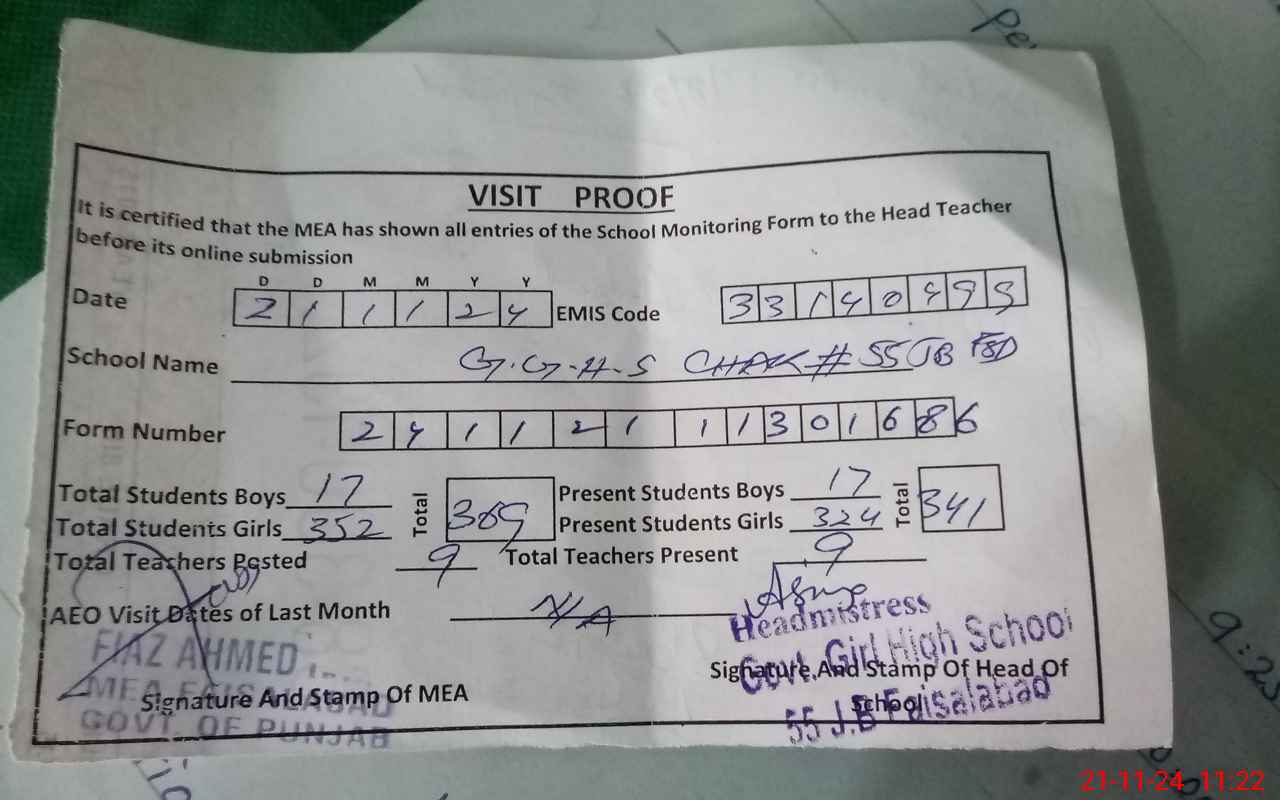 VISIT PROOF
It is certified that the MEA has shown all entries of the School Monitoring Form to the Head Teacher
before its online submission
D D M M Y Y
Date 2 1 1 1 2 4 EMIS Code 3 3 1 4 0 4 9 9
School Name G.G.H.S CHAK # 55 JB FSD
Form Number 2 4 1 1 2 1 1 1 3 0 1 6 8 6
Total Students Boys 17 Total 369 Present Students Boys 17 Total 341
Total Students Girls 352 Present Students Girls 324
Total Teachers Posted 9 Total Teachers Present 9
AEO Visit Dates of Last Month N/A
Asma
Headmistress
Govt. Girl High School
55 J.B Faisalabad
Signature And Stamp Of Head Of
School
FIAZ AHMED
MEA FAISALABAD
GOVT. OF PUNJAB
Signature And Stamp Of MEA
9:25
21-11-24 11:22